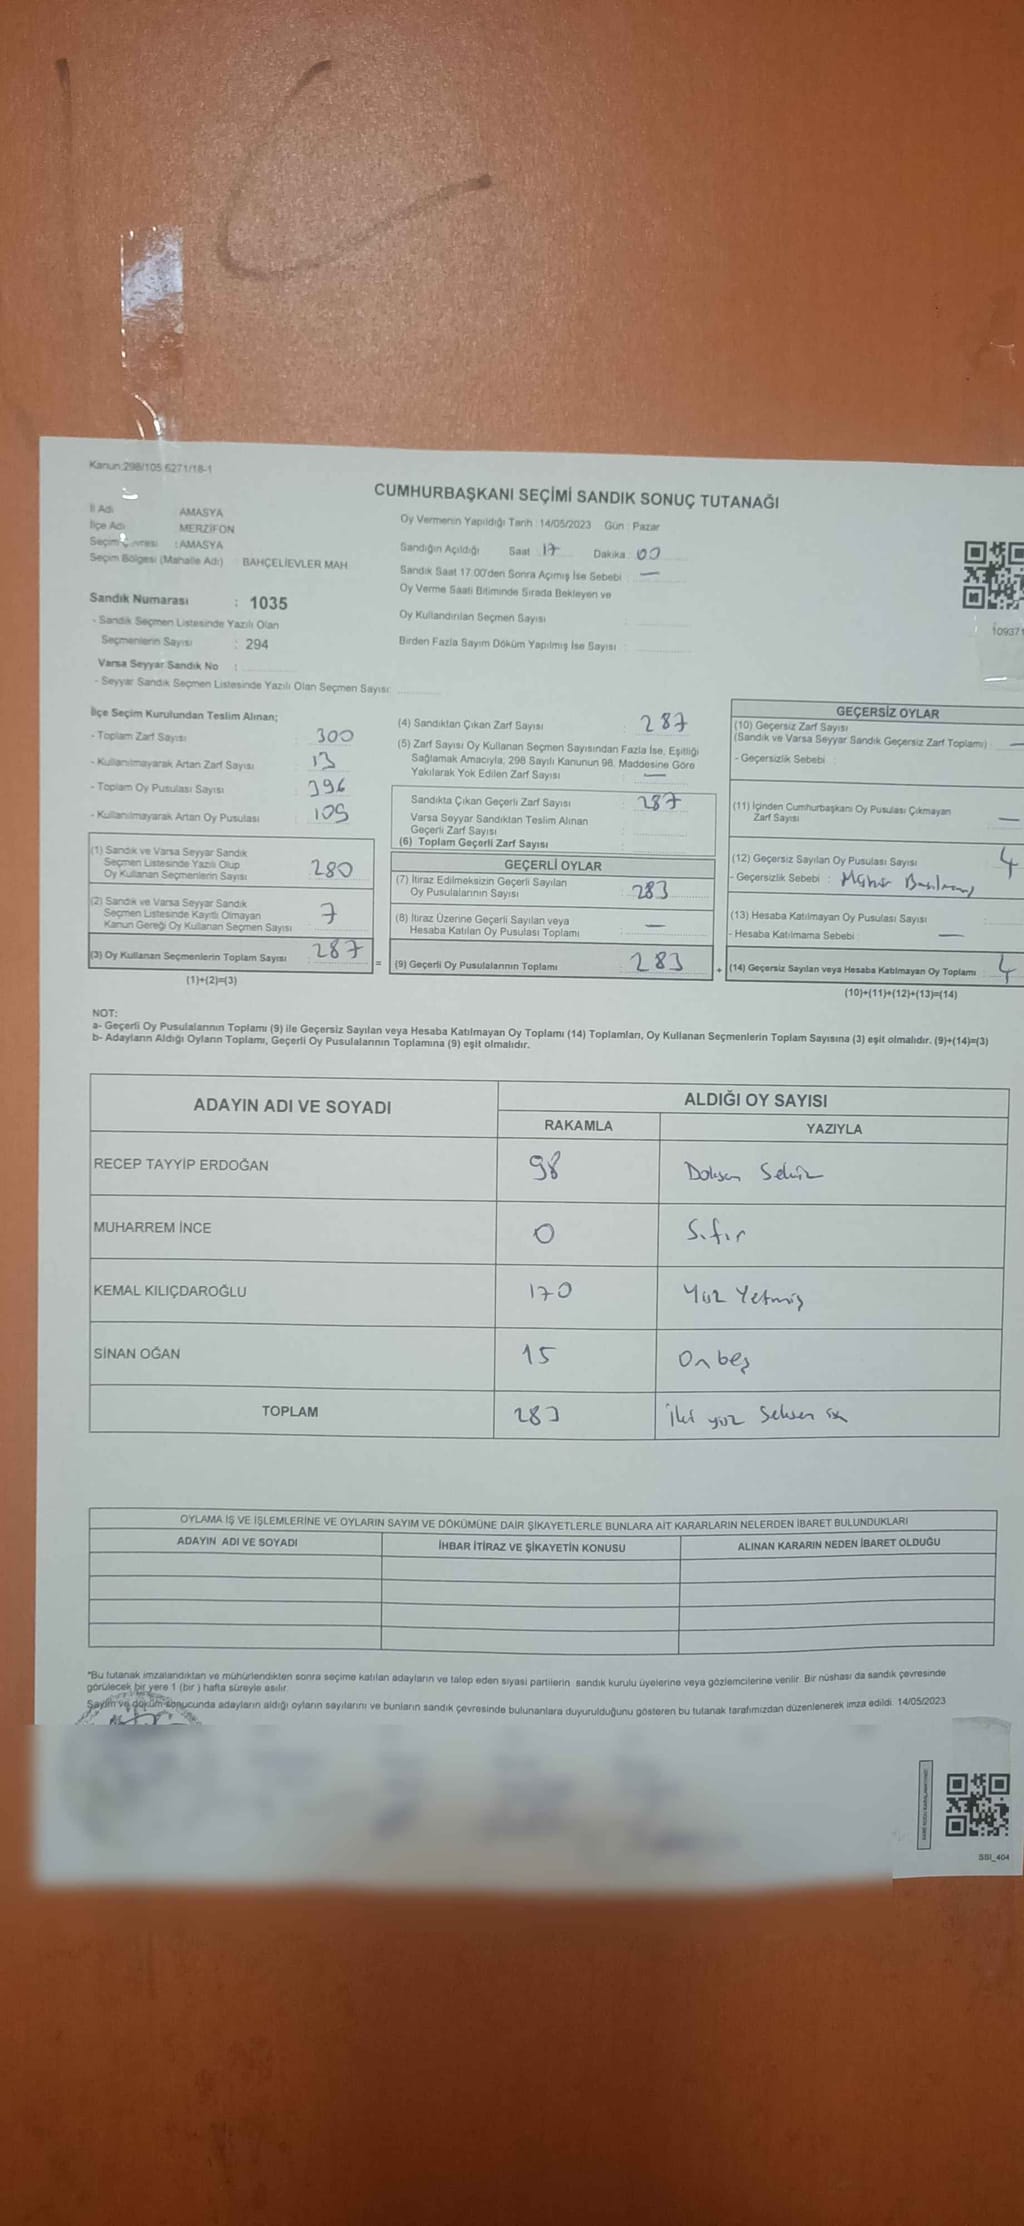 Kanun:298/105 6271/18-1
CUMHURBAŞKANI SEÇİMİ SANDIK SONUÇ TUTANAĞI
İl Adı AMASYA
İlçe Adı MERZİFON
Seçim Çevresi : AMASYA
Seçim Bölgesi (Mahalle Adı) BAHÇELİEVLER MAH
Oy Vermenin Yapıldığı Tarih : 14/05/2023 Gün : Pazar
Sandığın Açıldığı Saat 17 Dakika : 00
Sandık Saat 17:00'den Sonra Açımış İse Sebebi : —
Oy Verme Saati Bitiminde Sırada Bekleyen ve
Oy Kullandırılan Seçmen Sayısı :
Birden Fazla Sayım Döküm Yapılmış İse Sayısı :
109371
Sandık Numarası : 1035
- Sandık Seçmen Listesinde Yazılı Olan
Seçmenlerin Sayısı : 294
Varsa Seyyar Sandık No :
- Seyyar Sandık Seçmen Listesinde Yazılı Olan Seçmen Sayısı:
İlçe Seçim Kurulundan Teslim Alınan;
- Toplam Zarf Sayısı : 300
- Kullanılmayarak Artan Zarf Sayısı : 13
- Toplam Oy Pusulası Sayısı : 396
- Kullanılmayarak Artan Oy Pusulası : 109
(1) Sandık ve Varsa Seyyar Sandık
Seçmen Listesinde Yazılı Olup
Oy Kullanan Seçmenlerin Sayısı 280
(2) Sandık ve Varsa Seyyar Sandık
Seçmen Listesinde Kayıtlı Olmayan
Kanun Gereği Oy Kullanan Seçmen Sayısı 7
(3) Oy Kullanan Seçmenlerin Toplam Sayısı : 287
(1)+(2)=(3)
(4) Sandıktan Çıkan Zarf Sayısı : 287
(5) Zarf Sayısı Oy Kullanan Seçmen Sayısından Fazla İse, Eşitliği
Sağlamak Amacıyla, 298 Sayılı Kanunun 98. Maddesine Göre
Yakılarak Yok Edilen Zarf Sayısı : —
Sandıkta Çıkan Geçerli Zarf Sayısı : 287
Varsa Seyyar Sandıktan Teslim Alınan
Geçerli Zarf Sayısı :
(6) Toplam Geçerli Zarf Sayısı :
GEÇERLİ OYLAR
(7) İtiraz Edilmeksizin Geçerli Sayılan
Oy Pusulalarının Sayısı : 283
(8) İtiraz Üzerine Geçerli Sayılan veya
Hesaba Katılan Oy Pusulası Toplamı : —
= (9) Geçerli Oy Pusulalarının Toplamı : 283
GEÇERSİZ OYLAR
(10) Geçersiz Zarf Sayısı
(Sandık ve Varsa Seyyar Sandık Geçersiz Zarf Toplamı) : —
- Geçersizlik Sebebi :
(11) İçinden Cumhurbaşkanı Oy Pusulası Çıkmayan
Zarf Sayısı : —
(12) Geçersiz Sayılan Oy Pusulası Sayısı 4
- Geçersizlik Sebebi : Mühür
(13) Hesaba Katılmayan Oy Pusulası Sayısı :
- Hesaba Katılmama Sebebi : —
+ (14) Geçersiz Sayılan veya Hesaba Katılmayan Oy Toplamı : 4
(10)+(11)+(12)+(13)=(14)
NOT:
a- Geçerli Oy Pusulalarının Toplamı (9) ile Geçersiz Sayılan veya Hesaba Katılmayan Oy Toplamı (14) Toplamları, Oy Kullanan Seçmenlerin Toplam Sayısına (3) eşit olmalıdır. (9)+(14)=(3)
b- Adayların Aldığı Oyların Toplamı, Geçerli Oy Pusulalarının Toplamına (9) eşit olmalıdır.
ADAYIN ADI VE SOYADI
ALDIĞI OY SAYISI
RAKAMLA YAZIYLA
RECEP TAYYİP ERDOĞAN 98 Doksan Sekiz
MUHARREM İNCE 0 Sıfır
KEMAL KILIÇDAROĞLU 170 Yüz Yetmiş
SİNAN OĞAN 15 On beş
TOPLAM 283 İki yüz Seksen üç
OYLAMA İŞ VE İŞLEMLERİNE VE OYLARIN SAYIM VE DÖKÜMÜNE DAİR ŞİKAYETLERLE BUNLARA AİT KARARLARIN NELERDEN İBARET BULUNDUKLARI
ADAYIN ADI VE SOYADI İHBAR İTİRAZ VE ŞİKAYETİN KONUSU ALINAN KARARIN NEDEN İBARET OLDUĞU
*Bu tutanak imzalandıktan ve mühürlendikten sonra seçime katılan adayların ve talep eden siyasi partilerin sandık kurulu üyelerine veya gözlemcilerine verilir. Bir nüshası da sandık çevresinde
görülecek bir yere 1 (bir ) hafta süreyle asılır.
Sayım ve döküm sonucunda adayların aldığı oyların sayılarını ve bunların sandık çevresinde bulunanlara duyurulduğunu gösteren bu tutanak tarafımızdan düzenlenerek imza edildi. 14/05/2023
SSI_404